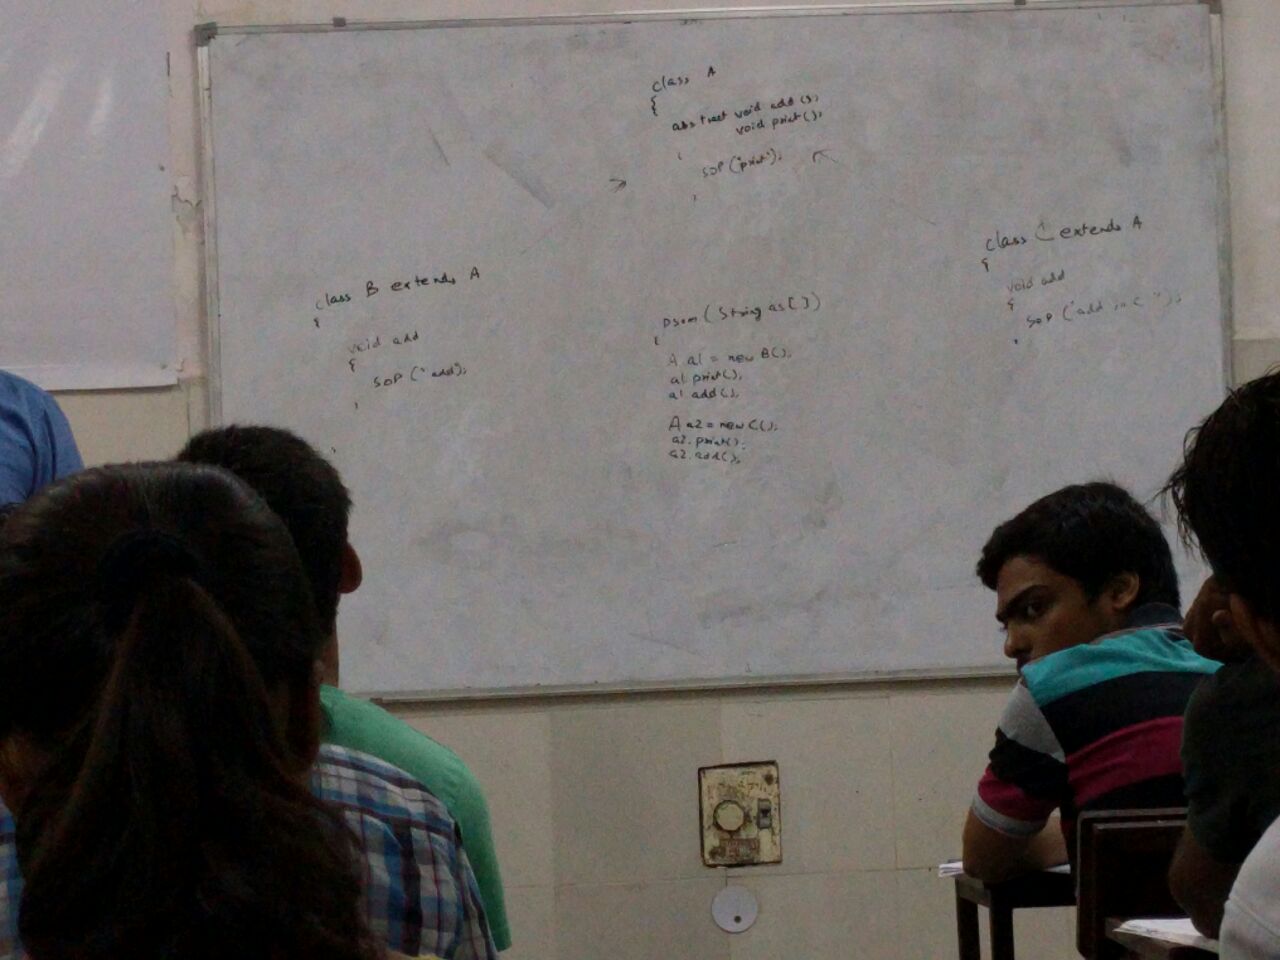 class A
{
abstract void add();
void print();
{
SOP ("print");
}
class B extends A
{
void add
{
SOP ("add);
}
}
psvm (String as[])
{
A a1 = new B();
a1.print();
a1.add();
A a2 = new C();
a2.print();
a2.add();
class C extends A
{
void add
{
SOP ("add in C");
}